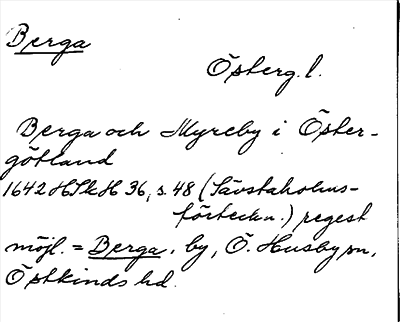 Berga
Österg. l.
Berga och Myreby i Öster-
götland
1642 HSkH 36, s. 48 (Sävstaholms-
förteckn.) regest
möjl. = Berga, by, Ö. Husby sn,
Östkinds hd.